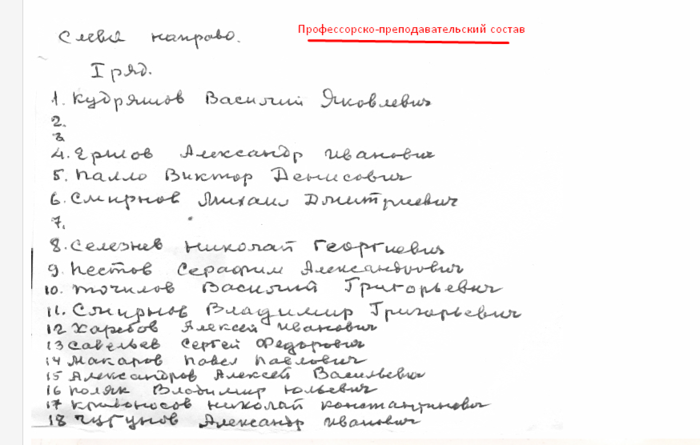 Профессорско-преподавательский состав
Слева направо.
I ряд.
1. Кудряшов Василий Яковлевич
2.
3.
4. Ершов Александр Иванович
5. Палло Виктор Денисович
6. Смирнов Михаил Дмитриевич
7.
8. Селезнев Николай Георгиевич
9. Пестов Серафим Александрович
10. Точилов Василий Григорьевич
11. Смирнов Владимир Григорьевич
12 Алексей Иванович
13 Савельев Сергей Федорович
14 Макаров Павел Павлович
15 Александров Алексей Васильевич
16 Поляк Владимир Юльевич
17 Кривоносов Николай Константинович
18 Чугунов Александр Иванович